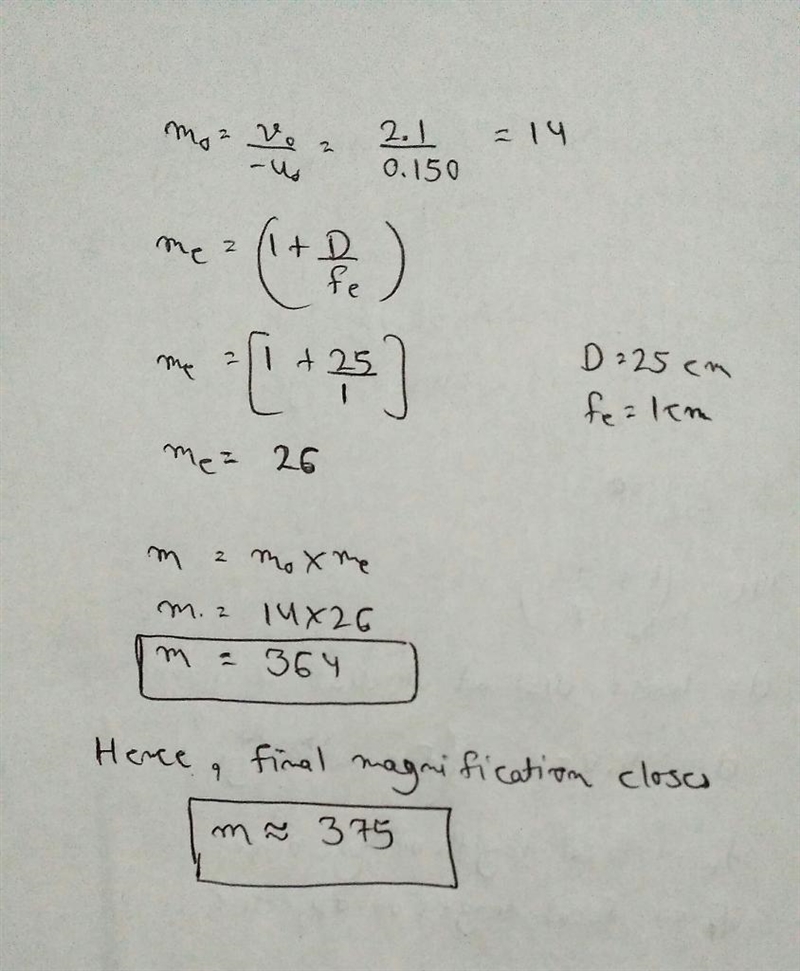 m₀ = v₀/-u₀ = 2.1/0.150 = 14
mₑ = (1 + D/fₑ)
mₑ = [1 + 25/1] D = 25 cm
fₑ = 1cm
mₑ = 26
m = m₀ × mₑ
m. = 14×26
m = 364
Hence, final magnification closes
m ≈ 375